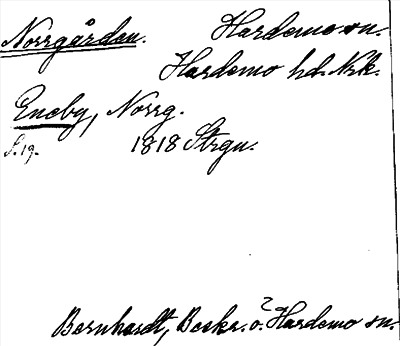 Norrgården. Hardemo sn.
Hardemo hd. Nrk.
Eneby, Norrg.
S. 19. 1818 Strgn.
Bernhardt, Beskr. ö. Hardemo sn.